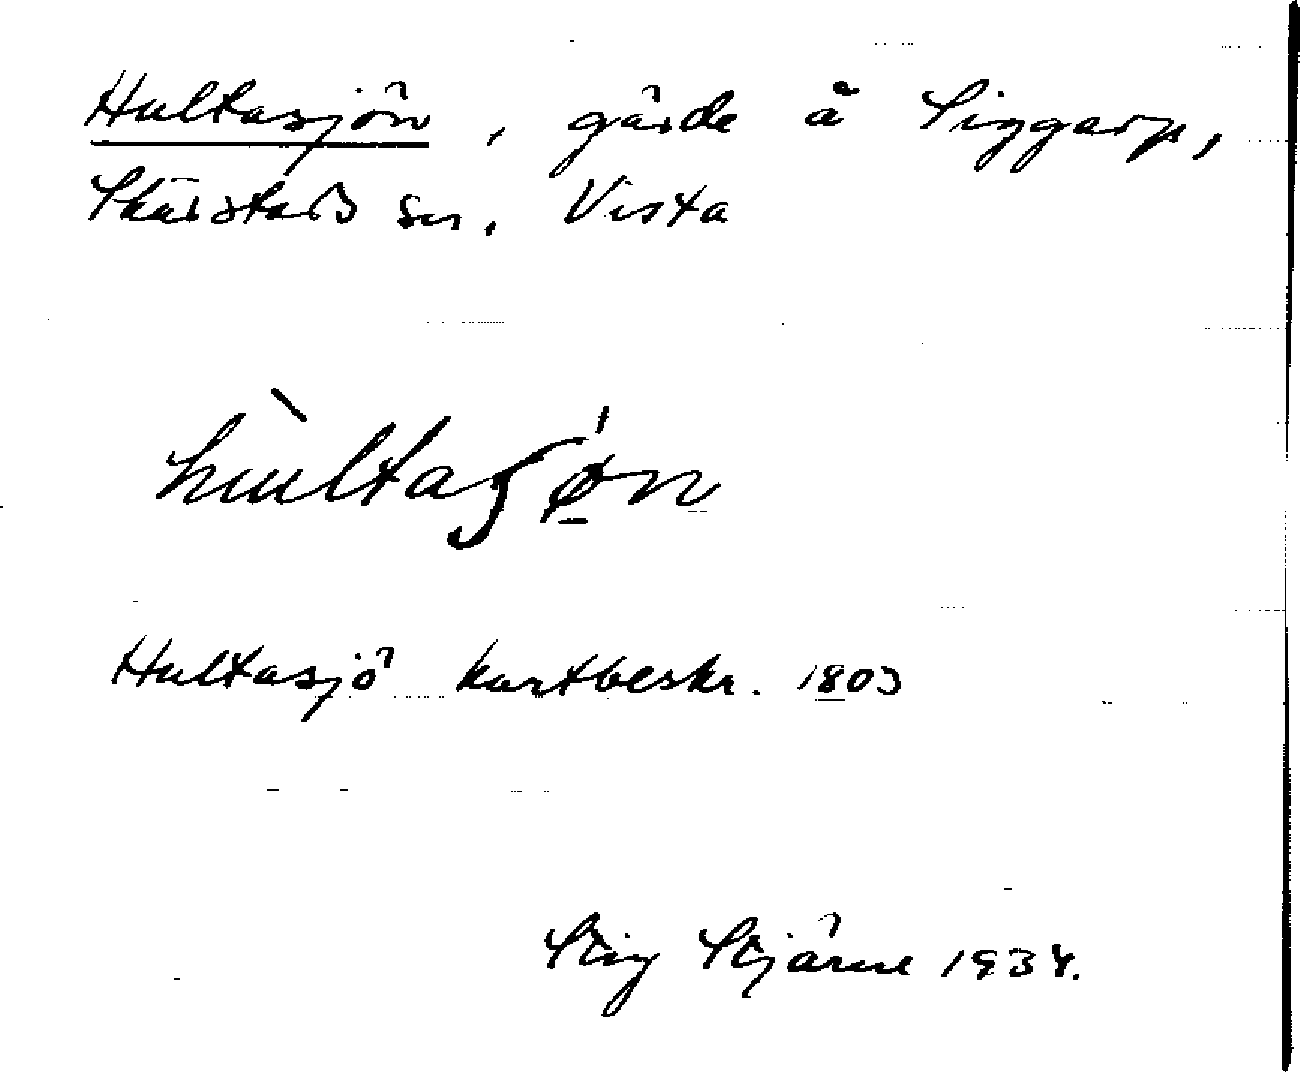 Hultasjön, gärde å Siggarp,
Skärstads sn, Vista
hùltaʃǿ̱n
Hultasjö kartbeskr. 1803
Stig Stjärne 1934.